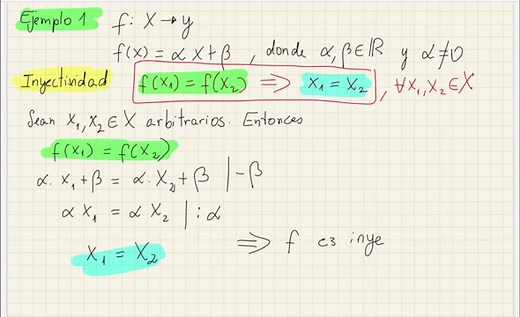 Ejemplo 1 f: X → y
f(x) = α x + β , donde α, β ∈ ℝ y α ≠ 0
Inyectividad f(x₁) = f(x₂) ⟹ x₁ = x₂ , ∀x₁, x₂ ∈ X
Sean x₁, x₂ ∈ X arbitrarios. Entonces
f(x₁) = f(x₂)
α · x₁ + β = α · x₂ + β | -β
α x₁ = α x₂ | : α
x₁ = x₂ ⟹ f es inye